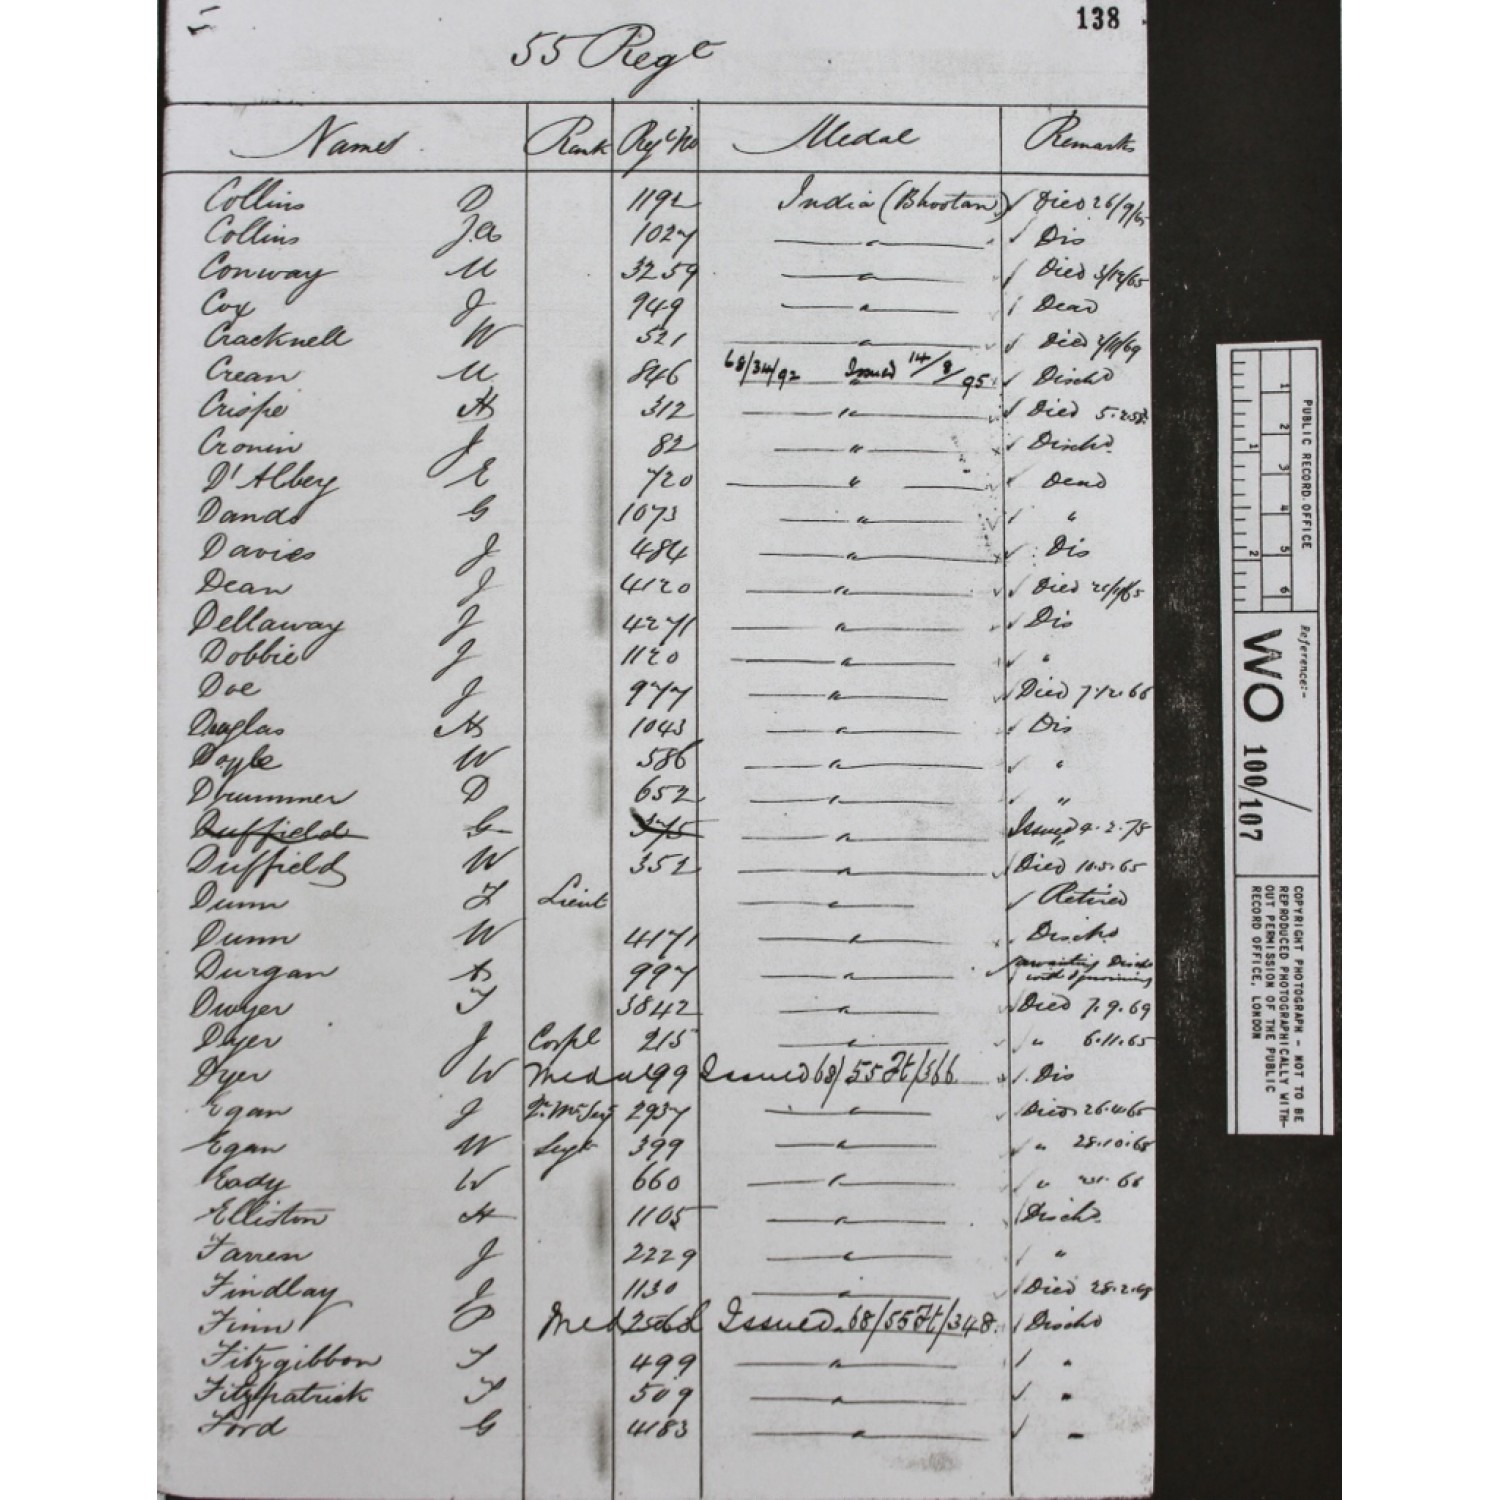 138
55 Regt
Names Rank Regtl No Medal Remarks
Collins D 1192 India (Bhootan) ✓ Died 26/9/65
Collins Ja 1027 " ✓ Dis
Conway M 3259 " ✓ Died 3/12/65
Cox J 949 " Dead
Cracknell W 521 " ✓ Died /69
Crean M 846 68/34/92 Issued 14/8/95 ✓ Dischd
Crispe 312 " ✓ Died
Cronin J 82 " ✓ Dischd
D'Albey E 720 " ✓ Dead
Dando G 1073 " ✓ "
Davies J 484 " ✓ Dis
Dean J 4120 " ✓ Died
Dellaway J 4271 " ✓ Dis
Dobbie J 1120 " ✓ "
Doe J 977 " ✓ Died 7.12.66
Douglas 1043 " ✓ Dis
Doyle W 586 " ✓ "
Drummer D 652 " ✓ "
Duffield G 375 " Issued 4.2.78
Duffield W 352 " ✓ Died 10.5.65
Dunn Lieut " ✓ Retired
Dunn W 4171 " Dischd
Durgan 997 " ✓ awaiting Disch
Dwyer T 3842 " ✓ Died 7.9.69
Dyer J Corpl 215 " ✓ " 6.11.65
Dyer W Medal 99 Issued 68/55Ft/366 Dis
Egan J Qr Mr Sejt 2937 " Died 26.4.65
Egan W Sejt 399 " ✓ "
Eady W 660 " ✓ " 66
Elliston H 1105 " Dischd
Farren J 2229 " ✓ "
Findlay J 1130 " ✓ Died
Finn P Medal Issued 68/55Ft/348. ✓ Dischd
Fitzgibbon T 499 " "
Fitzpatrick T 509 " ✓ "
Ford G 4183 " ✓ "
1 2 3 4 5 6
1 2
PUBLIC RECORD OFFICE
Reference:-
WO 100/107
COPYRIGHT PHOTOGRAPH - NOT TO BE
REPRODUCED PHOTOGRAPHICALLY WITH-
OUT PERMISSION OF THE PUBLIC
RECORD OFFICE, LONDON